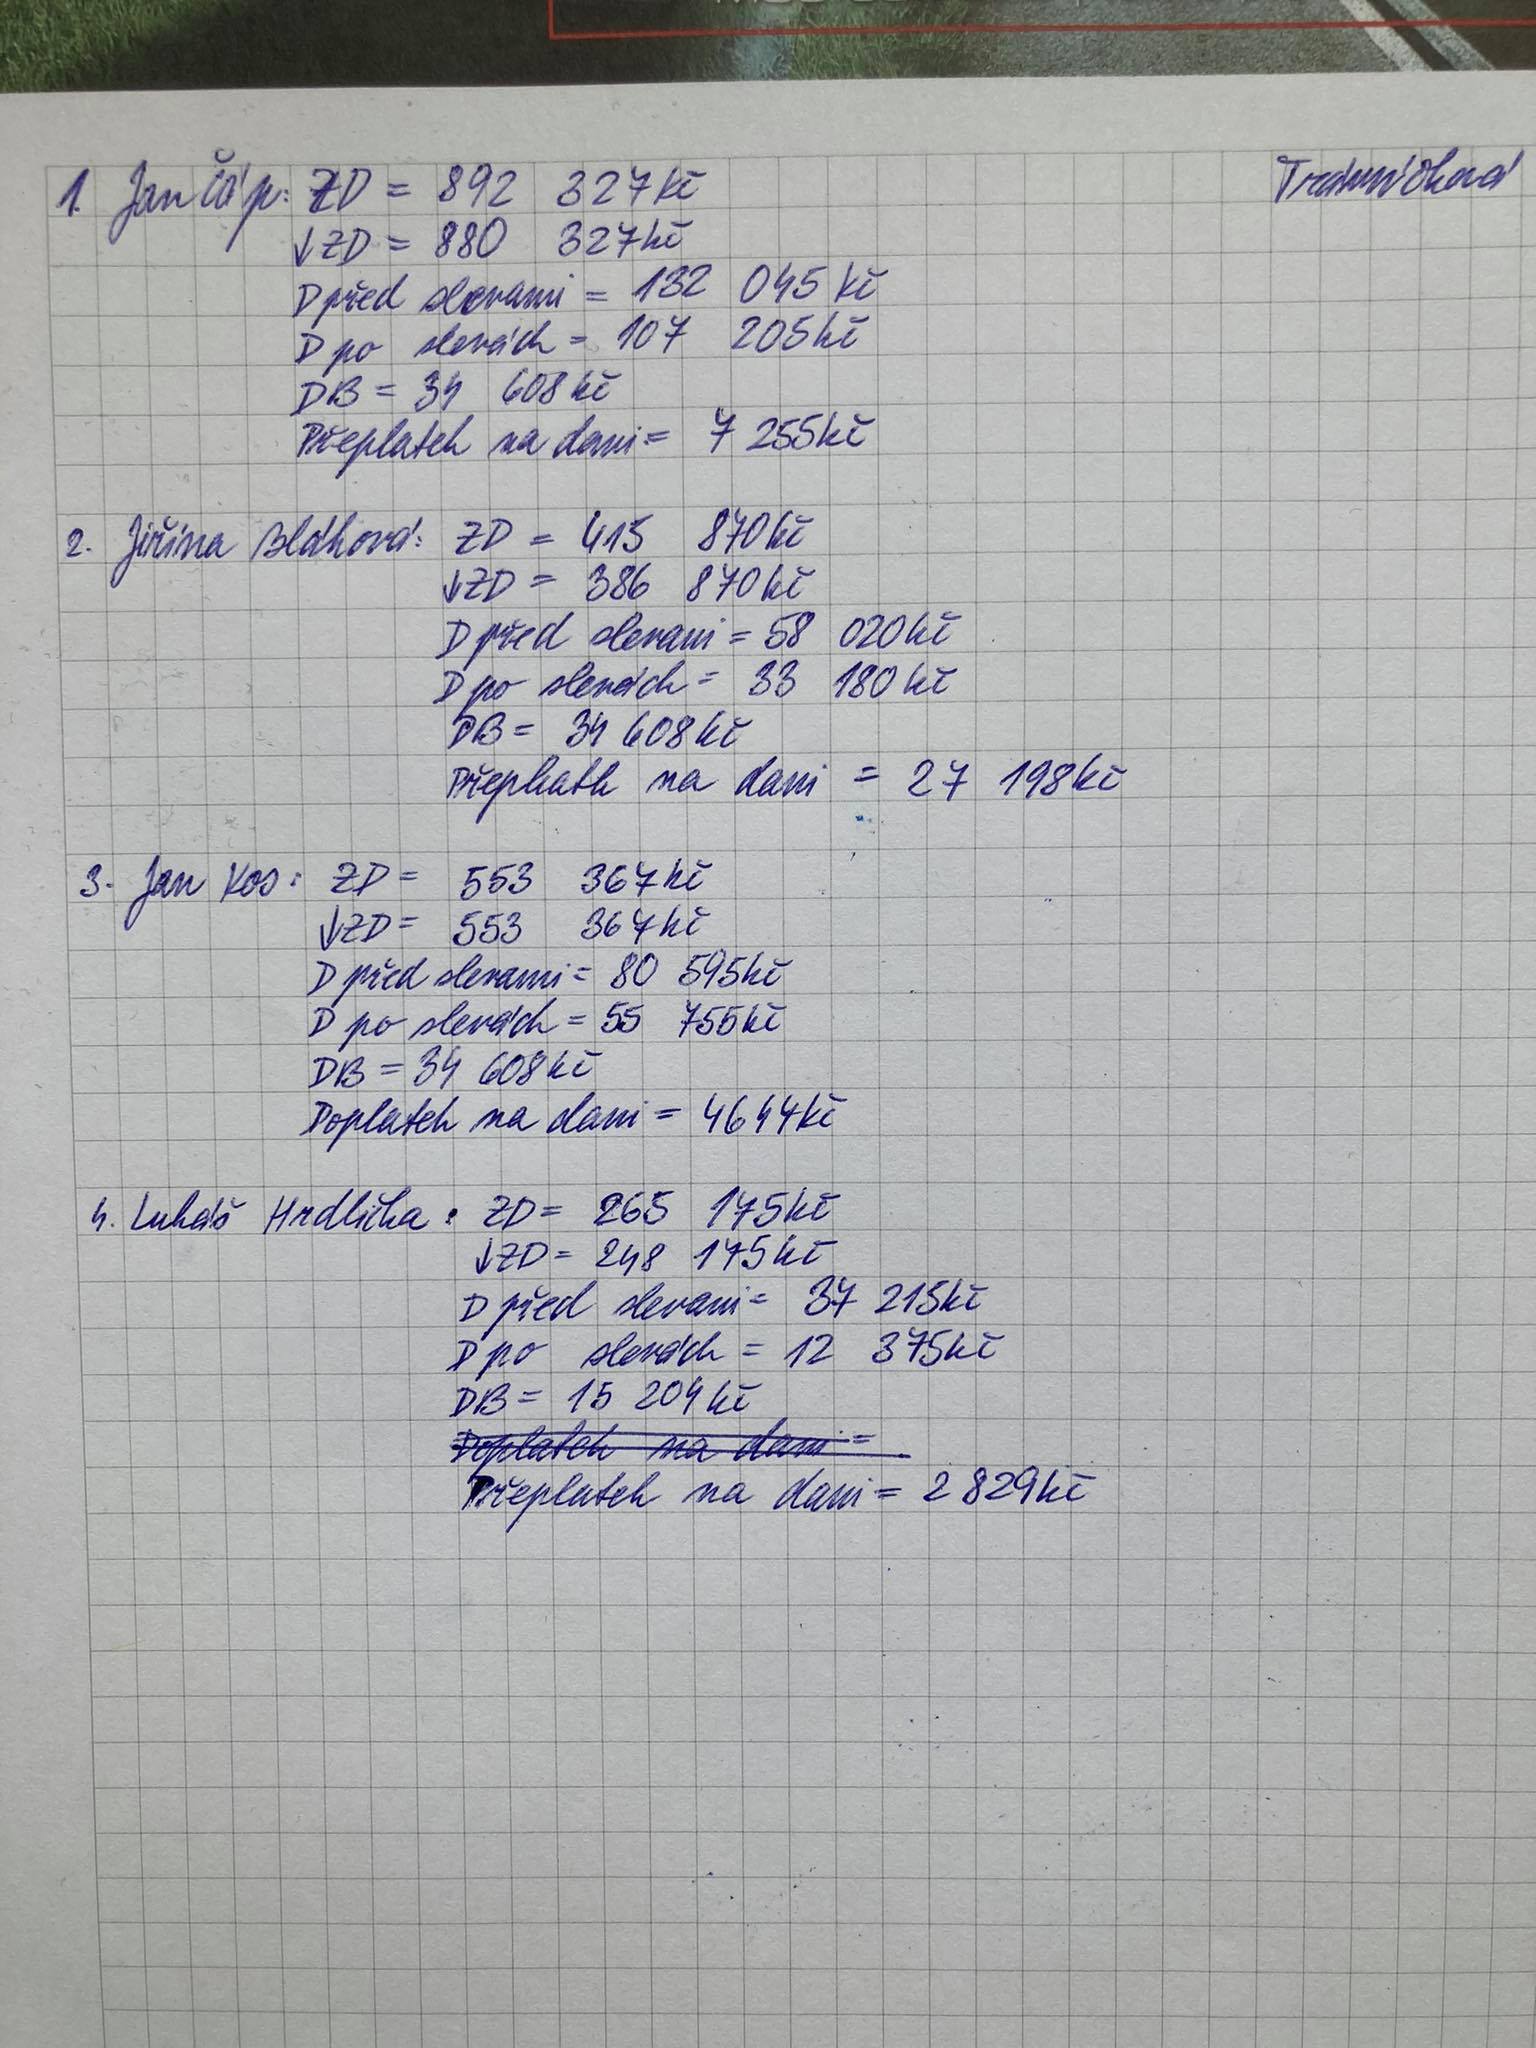 1. Jan Čáp: ZD = 892 327Kč
↓ZD = 880 327Kč
D před slevami = 132 045 Kč
D po slevách = 107 205Kč
DB = 34 608Kč
Přeplatek na dani = 7 255Kč
2. Jiřina Bláhová: ZD = 415 870Kč
↓ZD = 386 870Kč
D před slevami = 58 020Kč
D po slevách = 33 180Kč
DB = 34 608Kč
Přeplatek na dani = 27 198Kč
3. Jan Kos: ZD = 553 367Kč
↓ZD = 553 367Kč
D před slevami = 80 595Kč
D po slevách = 55 755Kč
DB = 34 608Kč
Doplatek na dani = 4644Kč
4. Lukáš Hrdlička: ZD = 265 175Kč
↓ZD = 248 175Kč
D před slevami = 37 215Kč
D po slevách = 12 375Kč
DB = 15 204Kč
Doplatek na dani =
Přeplatek na dani = 2 829Kč